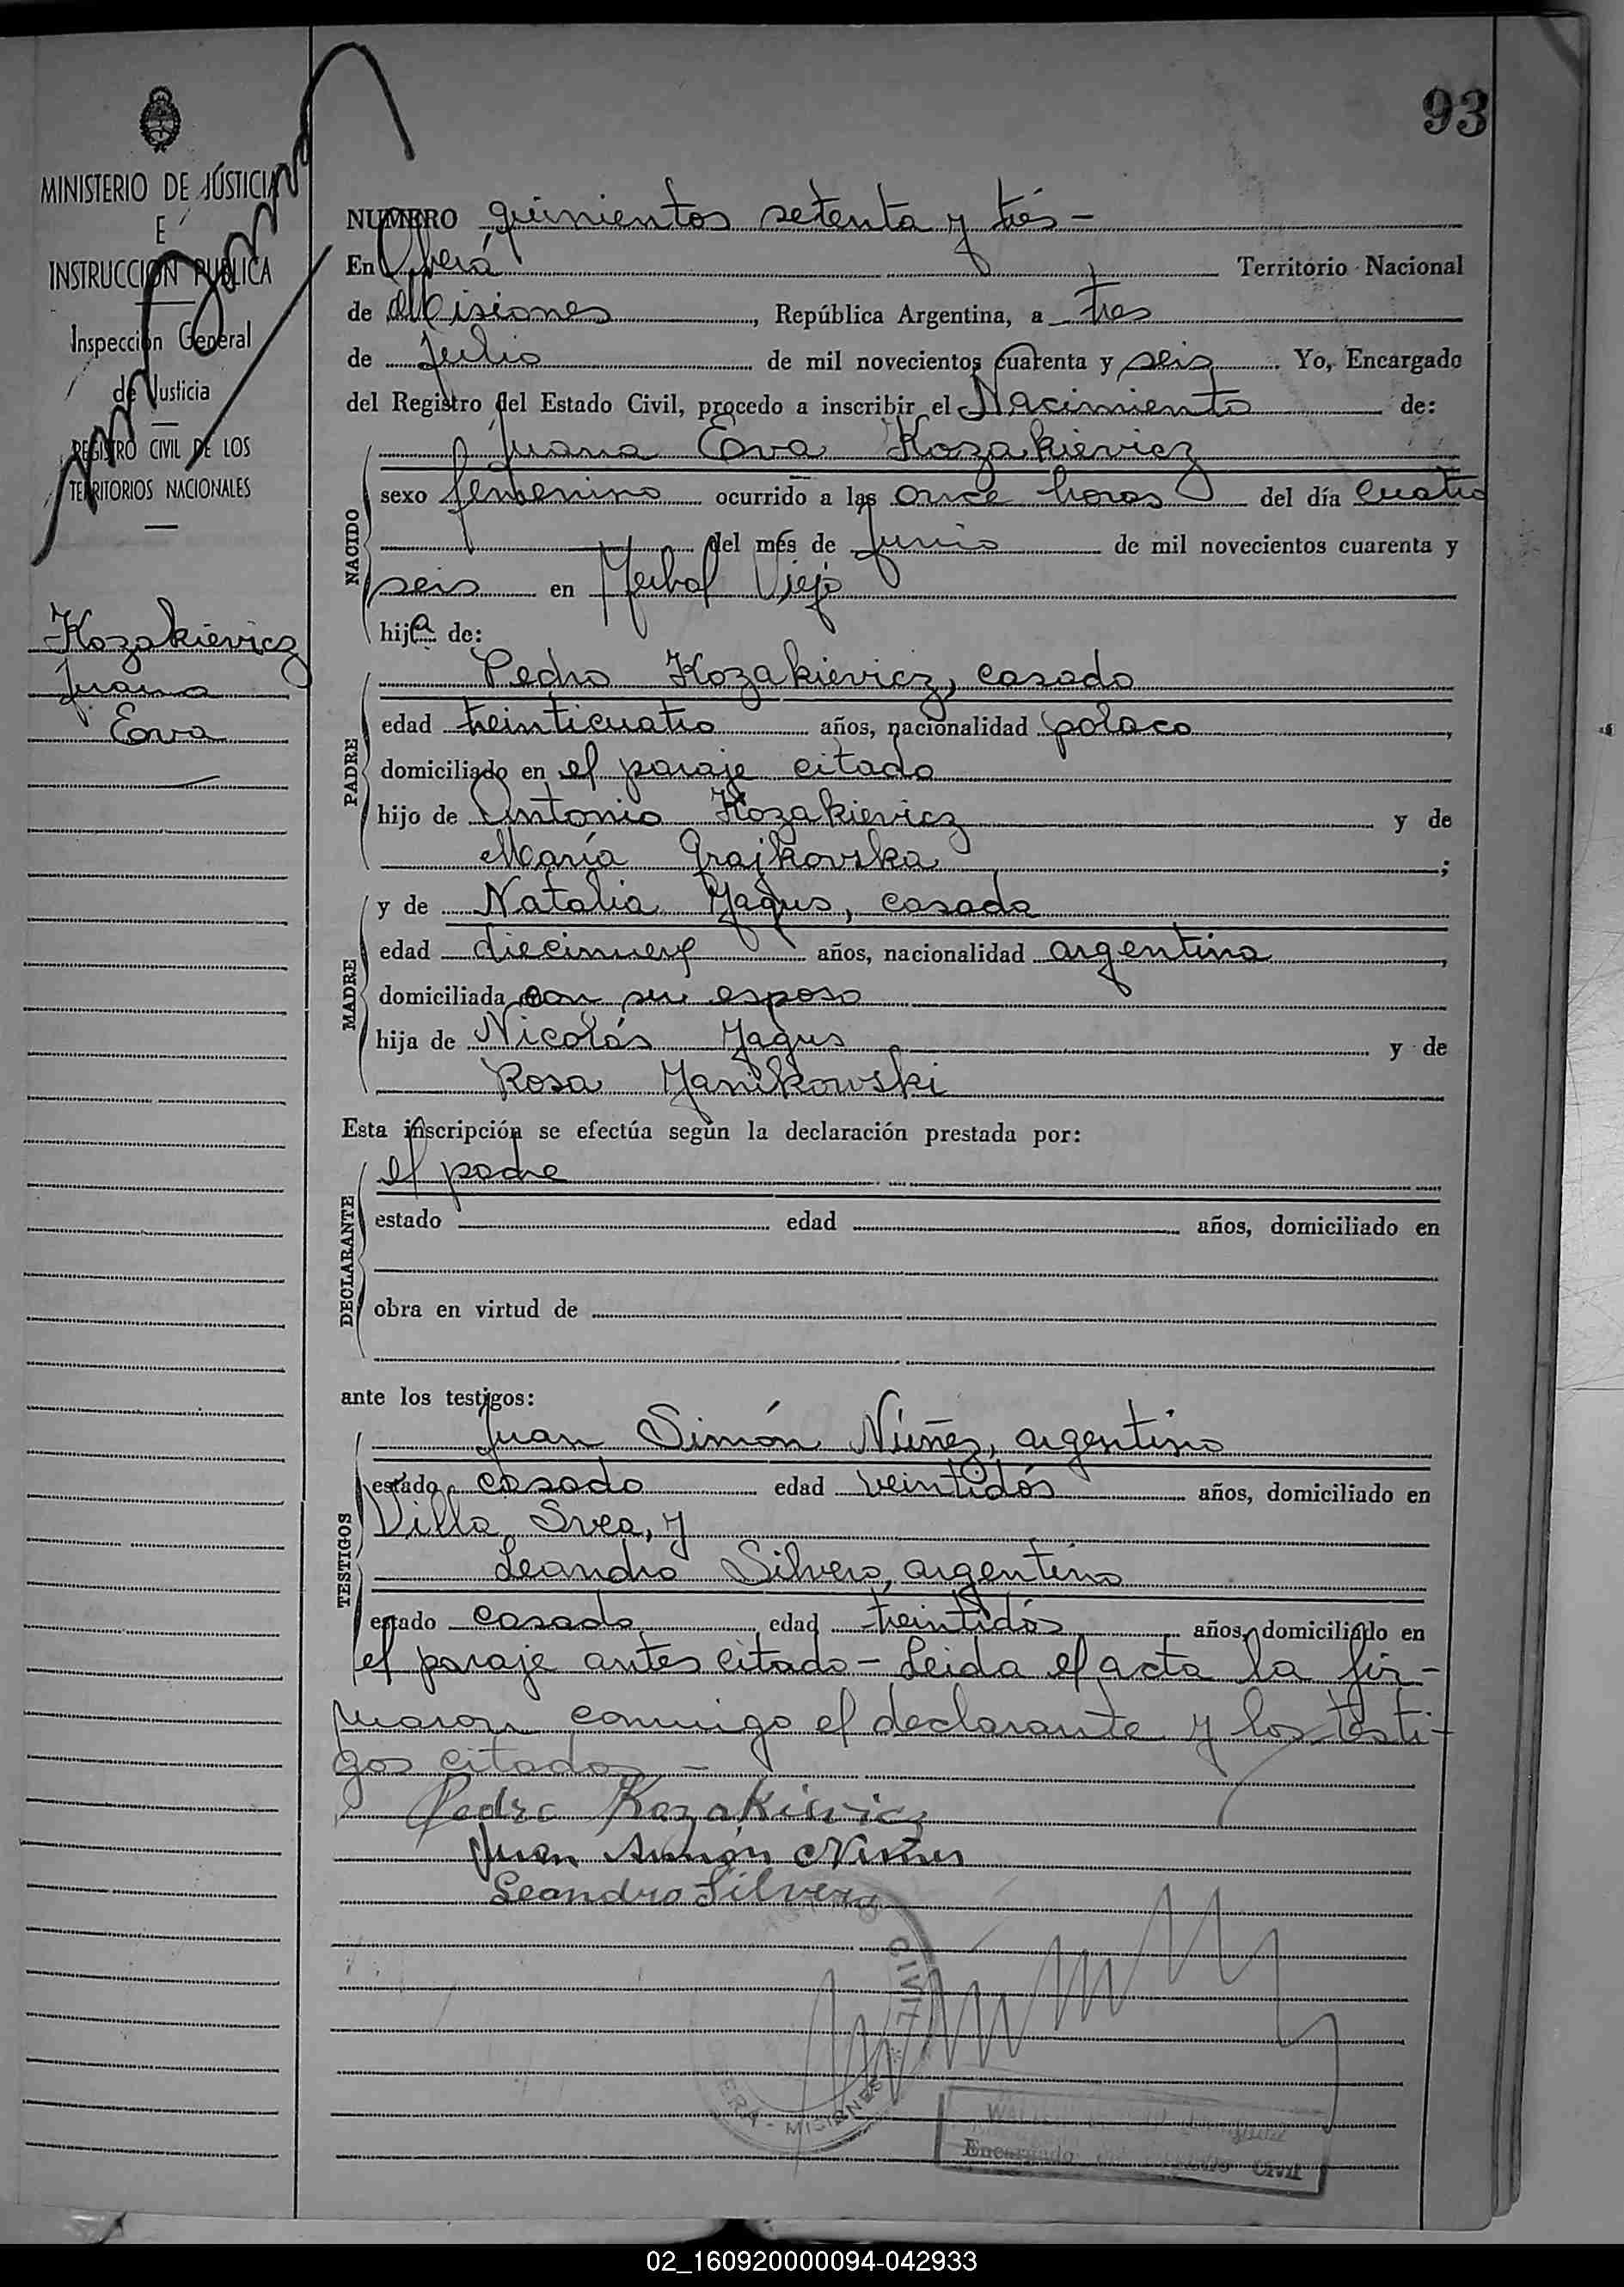 93
MINISTERIO DE JÚSTICIA
E
INSTRUCCION PUBLICA
Inspección General
de Justicia
REGISTRO CIVIL DE LOS
TERRITORIOS NACIONALES
Kozakievicz
Juana
Eova
NUMERO quinientos setenta y trés -
En Oberá Territorio Nacional
de Misiones, República Argentina, a tres
de Julio de mil novecientos cuarenta y seis. Yo, Encargado
del Registro del Estado Civil, procedo a inscribir el Nacimiento de:
NACIDO
Juana Eova Kozakievicz
sexo femenino ocurrido a las once horas del día cuatro
del més de junio de mil novecientos cuarenta y
seis en Yerbal Viejo
hija de:
PADRE
Pedro Kozakievicz, casado
edad treinticuatro años, nacionalidad polaco,
domiciliado en el paraje citado
hijo de Antonio Kozakievicz y de
María Grajkovska;
MADRE
y de Natalia Yagus, casada
edad diecinueve años, nacionalidad argentina,
domiciliada con su esposo
hija de Nicolás Yagus y de
Rosa Yanikowski
Esta inscripción se efectúa según la declaración prestada por:
DECLARANTE
el padre
estado edad años, domiciliado en
obra en virtud de
ante los testigos:
TESTIGOS
Juan Simón Núñez, argentino
estado casado edad veintidós años, domiciliado en
Villa Svea, y
Leandro Silvero, argentino
estado casado edad treintidós años, domiciliado en
el paraje antes citado - Leida el acta la fir-
maron conmigo el declarante y los testi-
gos citados -
Pedro Kozakievicz
Juan Simón Núñez
Leandro Silvero
CIVIL
MISIONES
Encargado Civil
02_160920000094-042933